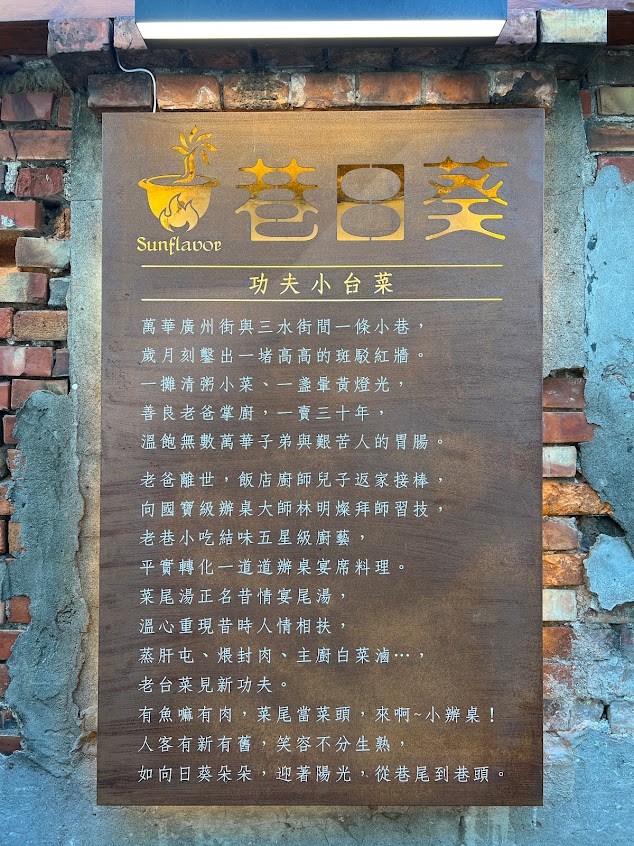 Sunflavor
巷日葵
功夫小台菜
萬華廣州街與三水街間一條小巷，
歲月刻鑿出一堵高高的斑駁紅牆。
一攤清粥小菜、一盞暈黃燈光，
善良老爸掌廚，一賣三十年，
溫飽無數萬華子弟與艱苦人的胃腸。
老爸離世，飯店廚師兒子返家接棒，
向國寶級辦桌大師林明燦拜師習技，
老巷小吃結味五星級廚藝，
平實轉化一道道辦桌宴席料理。
菜尾湯正名昔情宴尾湯，
溫心重現昔時人情相扶，
蒸肝屯、煨封肉、主廚白菜滷…，
老台菜見新功夫。
有魚嘛有肉，菜尾當菜頭，來啊~小辦桌！
人客有新有舊，笑容不分生熟，
如向日葵朵朵，迎著陽光，從巷尾到巷頭。